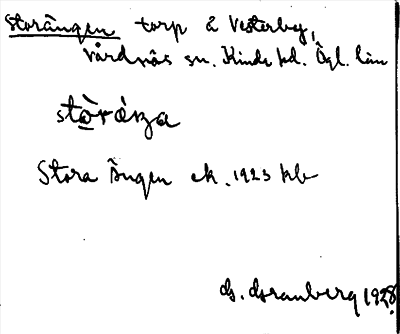 Storängen torp å Vesterby,
Vårdnäs sn. Kinda hd. Ögl. län
Stora Ängen ek. 1923 kb
G. Granberg 1928.